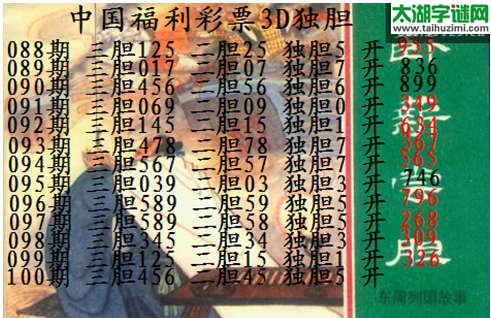 太湖字谜网
www.taihuzimi.com
中国福利彩票3D独胆
088期 三胆125 二胆25 独胆5 开
089期 三胆017 二胆07 独胆7 开 836
090期 三胆456 二胆56 独胆6 开 899
091期 三胆069 二胆09 独胆0 开 349
092期 三胆145 二胆15 独胆1 开 634
093期 三胆478 二胆78 独胆7 开 367
094期 三胆567 二胆57 独胆7 开 565
095期 三胆039 二胆03 独胆3 开 746
096期 三胆589 二胆59 独胆5 开 796
097期 三胆589 二胆58 独胆5 开 268
098期 三胆345 二胆34 独胆3 开 309
099期 三胆125 二胆15 独胆1 开 326
100期 三胆456 二胆45 独胆5 开
东周列国故事